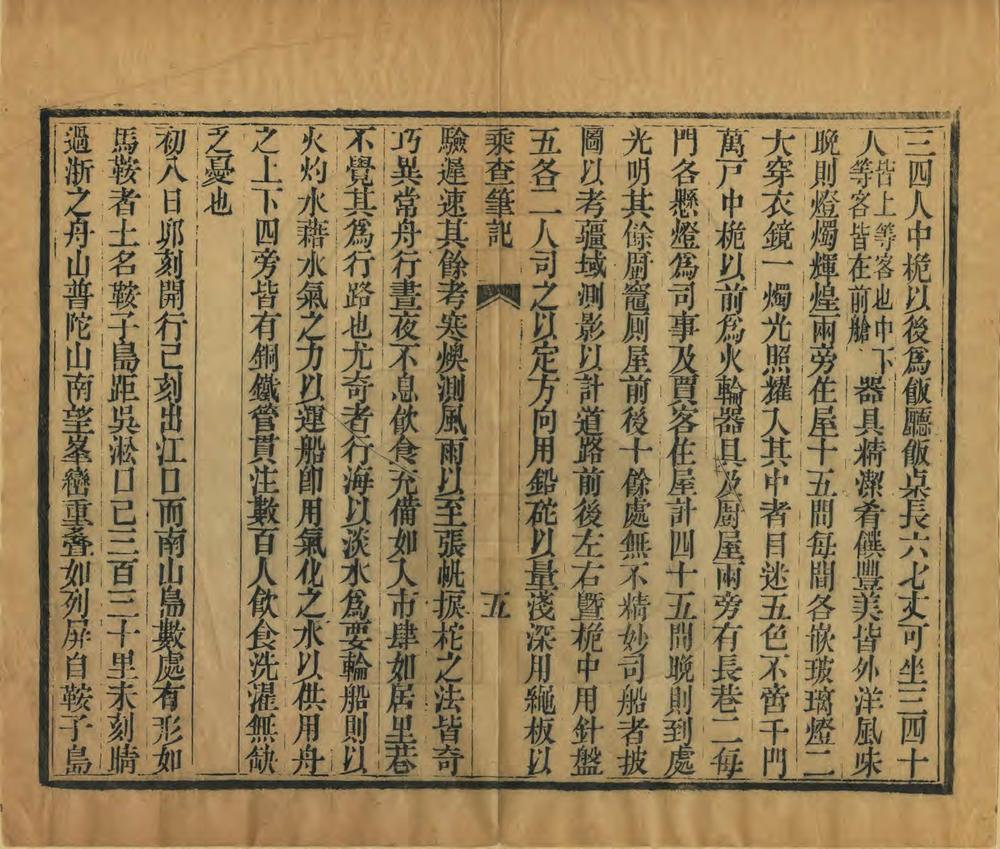 三四人中桅以後爲飯廳飯桌長六七丈可坐三四十
人皆上等客也中下等客皆在前艙器具精潔肴饌豐美皆外洋風味
晚則燈燭輝煌兩旁住屋十五間每間各嵌玻璃燈二
大穿衣鏡一燭光照耀入其中者目迷五色不啻千門
萬戸中桅以前爲火輪器具及廚屋兩旁有長巷二每
門各懸燈爲司事及賈客住屋計四十五間晚則到處
光明其餘廚竈厠屋前後十餘處無不精妙司船者披
圖以考疆域測影以計道路前後左右曁桅中用針盤
五各二人司之以定方向用鉛砣以量淺深用繩板以
乘查筆記
五
驗遲速其餘考寒燠測風雨以至張帆捩柁之法皆奇
巧異常舟行晝夜不息飲食充備如入市肆如居里巷
不覺其爲行路也尤奇者行海以淡水爲要輪船則以
火灼水藉水氣之力以運船卽用氣化之水以供用舟
之上下四旁皆有銅鐵管貫注數百人飲食洗濯無缺
乏憂也
初八日卯刻開行巳刻出江口而南山島數處有形如
馬鞍者土名鞍子島距吳淞口已三百三十里未刻晴
過浙之舟山普陀山南望峯巒重叠如列屏自鞍子島